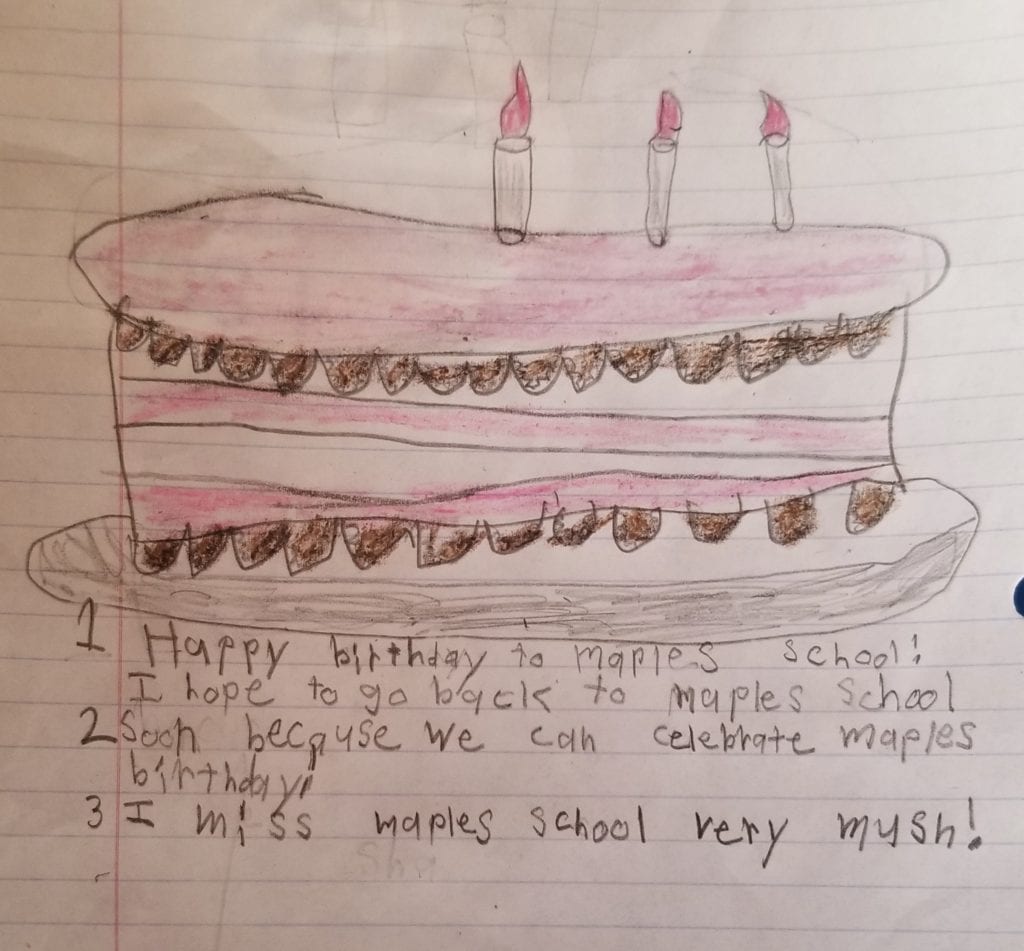 1 Happy birthday to maples school!
I hope to go back to maples school
2 Soon because we can celebrate maples
birthday!
3 I miss maples school very mush!